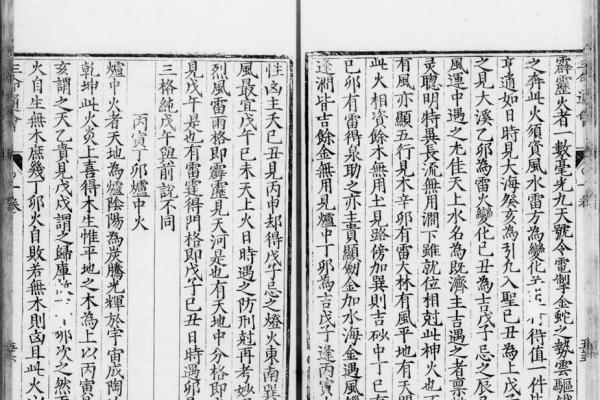 霹靂火者一數毫光九天號令電掣金蛇之勢雲驅鐵
之奔此火須資風水雷方為變化 得值一件其
亨通如日時見大海癸亥為引九入聖已丑為上戊子
之見大溪乙卯為雷火變化已丑為吉戊子忌之辰見
風運中遇之尤佳天上水名為既濟主吉遇之者稟
靈聰明特異長流無用澗下雖就位相尅此神火也不
有風亦顯五行見木辛卯有雷大林有風平地有天門
此火相資餘木無用土見路傍加巽則吉砂中丁巳有
已卯有雷得泉助之亦主貴顯劒金加水海金遇風蠟
逢澗皆吉餘金無用見爐中丁卯為吉戊子逢丙寅
性凶主夭已丑見丙申却得戊子忌之燈火東南巽
風最宜戊午已未天上火日時遇之防刑尅再考妙
烈風雷雨格即霹靂見天河是也有天地中分格即
見戊午是也有雷霆得門格即戊子已丑日時遇卯是
三格純戊午與前說不同
丙寅丁卯爐中火
爐中火者天地為爐陰陽為炭騰光輝於宇宙成陶
乾坤此火炎上喜得木生惟平地之木為上以丙寅見
亥謂之天乙貴見戊戌謂之歸庫 卯次之然丙
火自生無木庶幾丁卯火自敗若無木則凶且此火以
三命通會
一卷